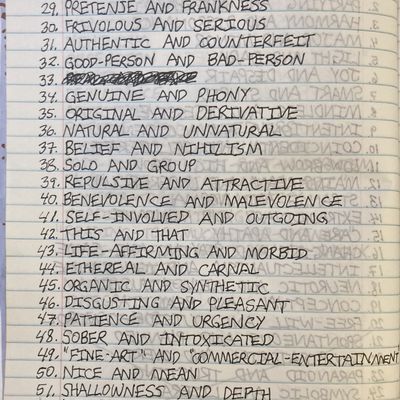 29. PRETENSE AND FRANKNESS
30. FRIVOLOUS AND SERIOUS
31. AUTHENTIC AND COUNTERFEIT
32. GOOD-PERSON AND BAD-PERSON
33.
34. GENUINE AND PHONY
35. ORIGINAL AND DERIVATIVE
36. NATURAL AND UNNATURAL
37. BELIEF AND NIHILISM
38. SOLO AND GROUP
39. REPULSIVE AND ATTRACTIVE
40. BENEVOLENCE AND MALEVOLENCE
41. SELF-INVOLVED AND OUTGOING
42. THIS AND THAT
43. LIFE-AFFIRMING AND MORBID
44. ETHEREAL AND CARNAL
45. ORGANIC AND SYNTHETIC
46. DISGUSTING AND PLEASANT
47. PATIENCE AND URGENCY
48. SOBER AND INTOXICATED
49. "FINE-ART" AND "COMMERCIAL-ENTERTAINMENT
50. NICE AND MEAN
51. SHALLOWNESS AND DEPTH